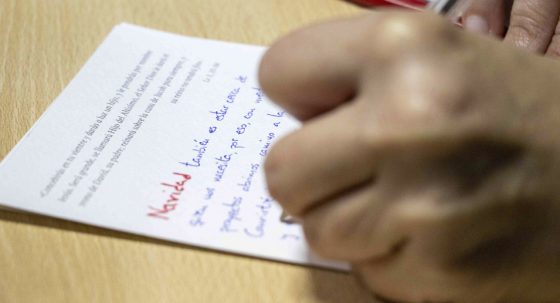 «Concebirás en tu vientre y darás a luz un hijo, y le pondrás por nombre
Jesús. Será grande, se llamará Hijo del Altísimo, el Señor Dios le dará el
trono de David, su padre; reinará sobre la casa de Jacob para siempre, y
su reino no tendrá fin»
Navidad también es estar cerca de
quien nos necesita, por eso, con
proyecto abrimos camino a la